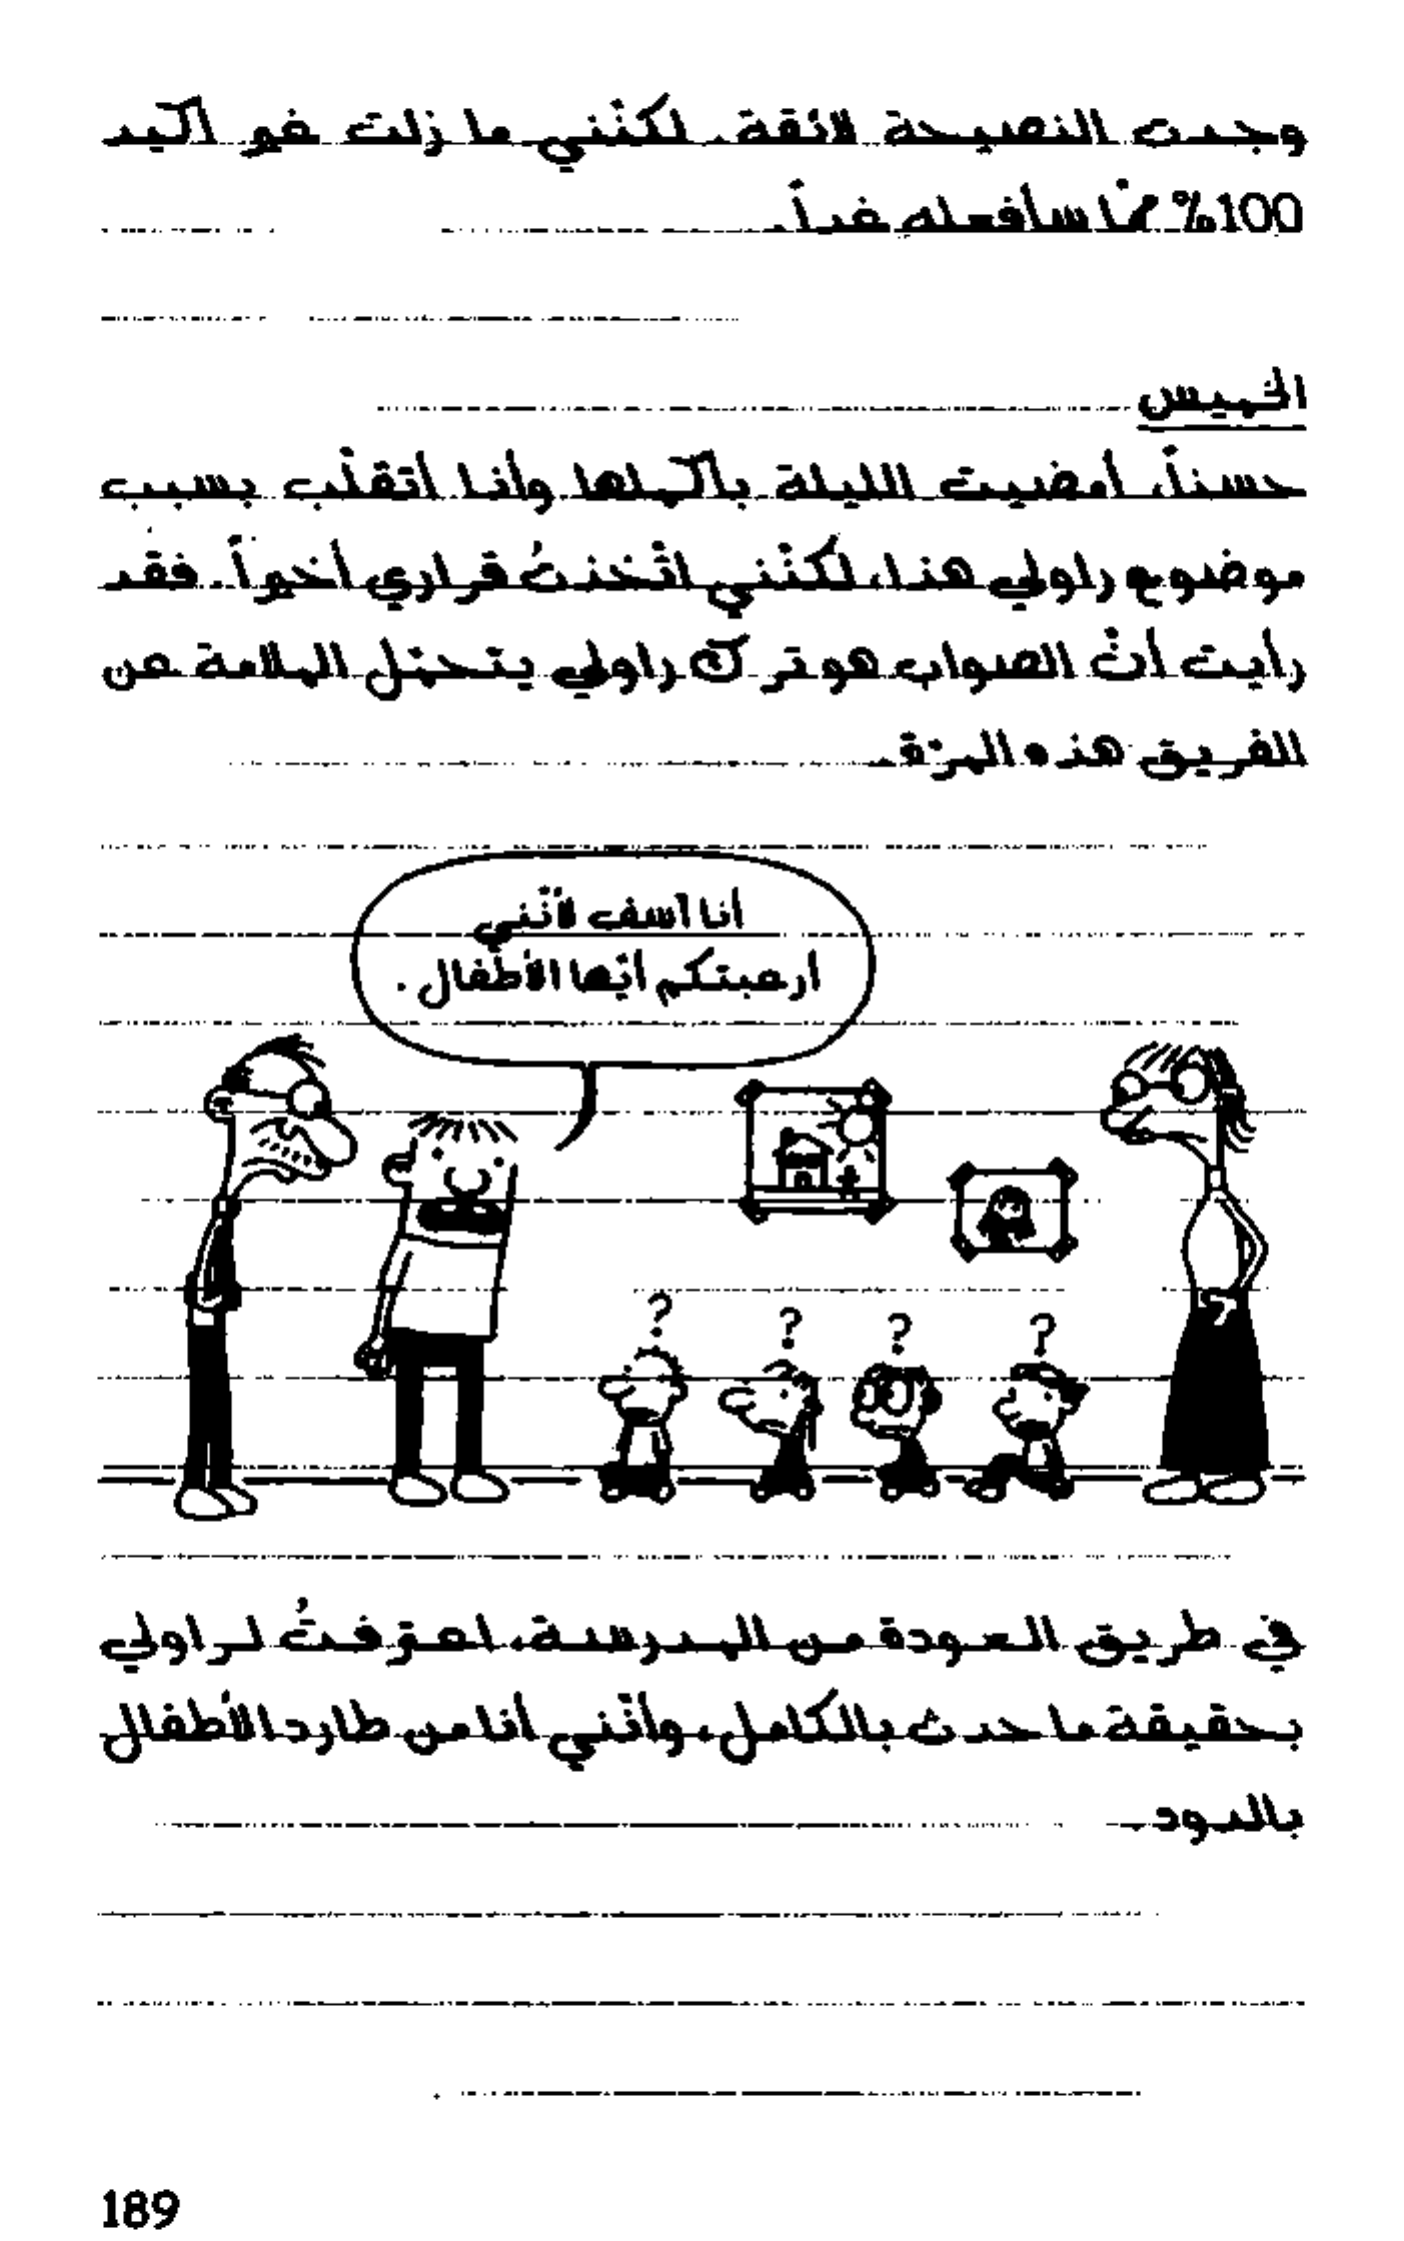 وجدت النصيحة لائقة. لكنّني ما زلت غير أكيد
100% ممّا سأفعله غداً.
الخميس
حسناً، أمضيت الليلة بأكملها وأنا أتقلّب بسبب
موضوع راولي هذا، لكنّني اتّخذتُ قراري أخيراً. فقد
رأيت أنّ الصواب هو ترك راولي يتحمّل الملامة عن
الفريق هذه المرّة.
أنا آسف لأنّني
أرعبتكم أيّها الأطفال.
?
?
?
?
في طريق العودة من المدرسة، اعترفتُ لراولي
بحقيقة ما حدث بالكامل، وأنّني أنا من طارد الأطفال
بالدود.
189